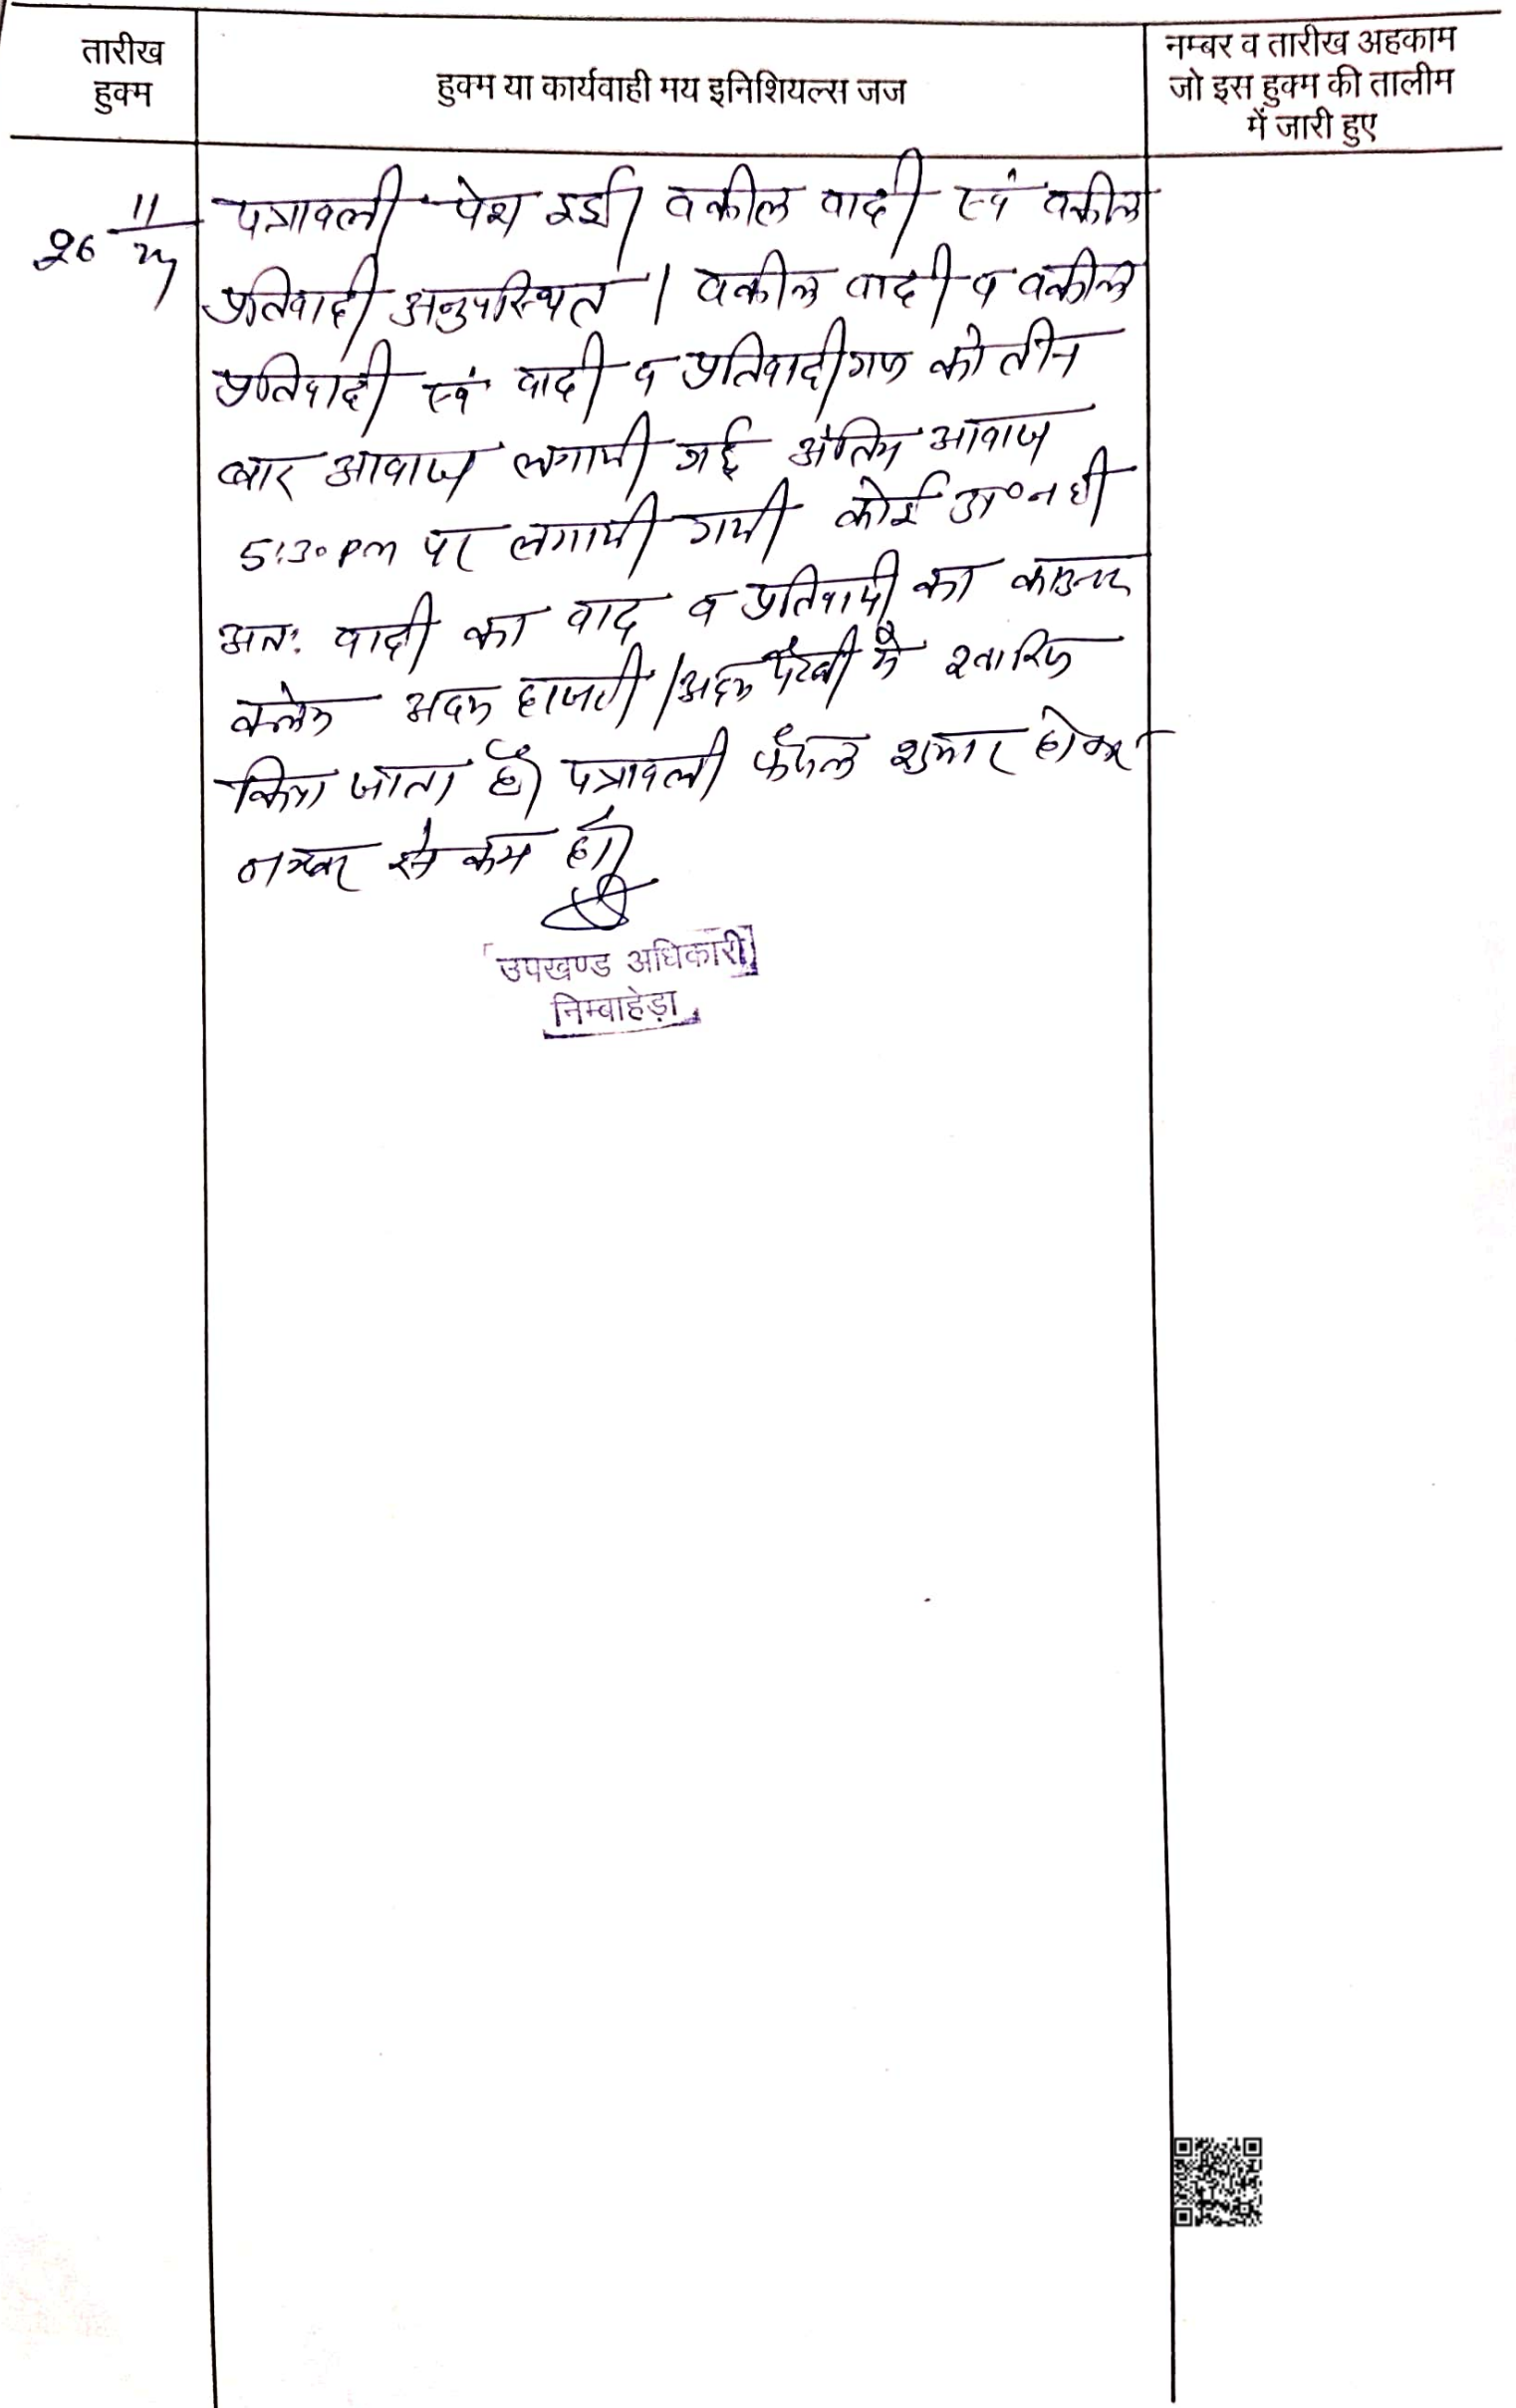 तारीख
हुक्म
हुक्म या कार्यवाही मय इनिशियल्स जज
नम्बर व तारीख अहकाम
जो इस हुक्म की तालीम
में जारी हुए
26 11/24
पत्रावली पेश हुई। वकील वादी एवं वकील
प्रतिवादी अनुपस्थित। वकील वादी व वकील
प्रतिवादी एवं वादी व प्रतिवादीगण को तीन
बार आवाज लगायी गई अंतिम आवाज
5:30 pm पर लगायी गयी कोई उ० नही
अतः वादी का वाद व प्रतिवादी का काउन्टर
क्लेम अदम हाजरी/अदम पैरवी मे खारिज
किया जाता है। पत्रावली फैसल शुमार होकर
नम्बर से कम हो।
उपखण्ड अधिकारी
निम्बाहेड़ा